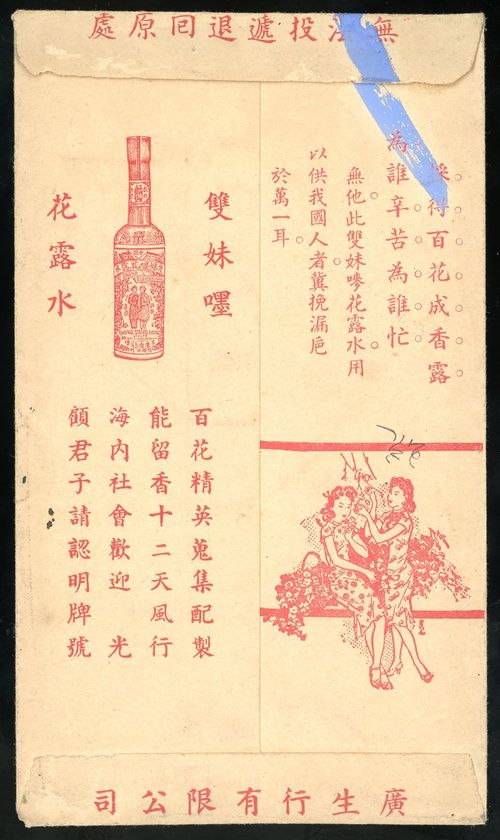 無法投遞退囘原處
採得百花成香露
為誰辛苦為誰忙
無他此雙妹嘜花露水用
以供我國人者冀挽漏巵
於萬一耳
雙妹嚜
花露水
百花精英蒐集配製
能留香十二天風行
海內社會歡迎 光
顧君子請認明牌號
廣生行有限公司